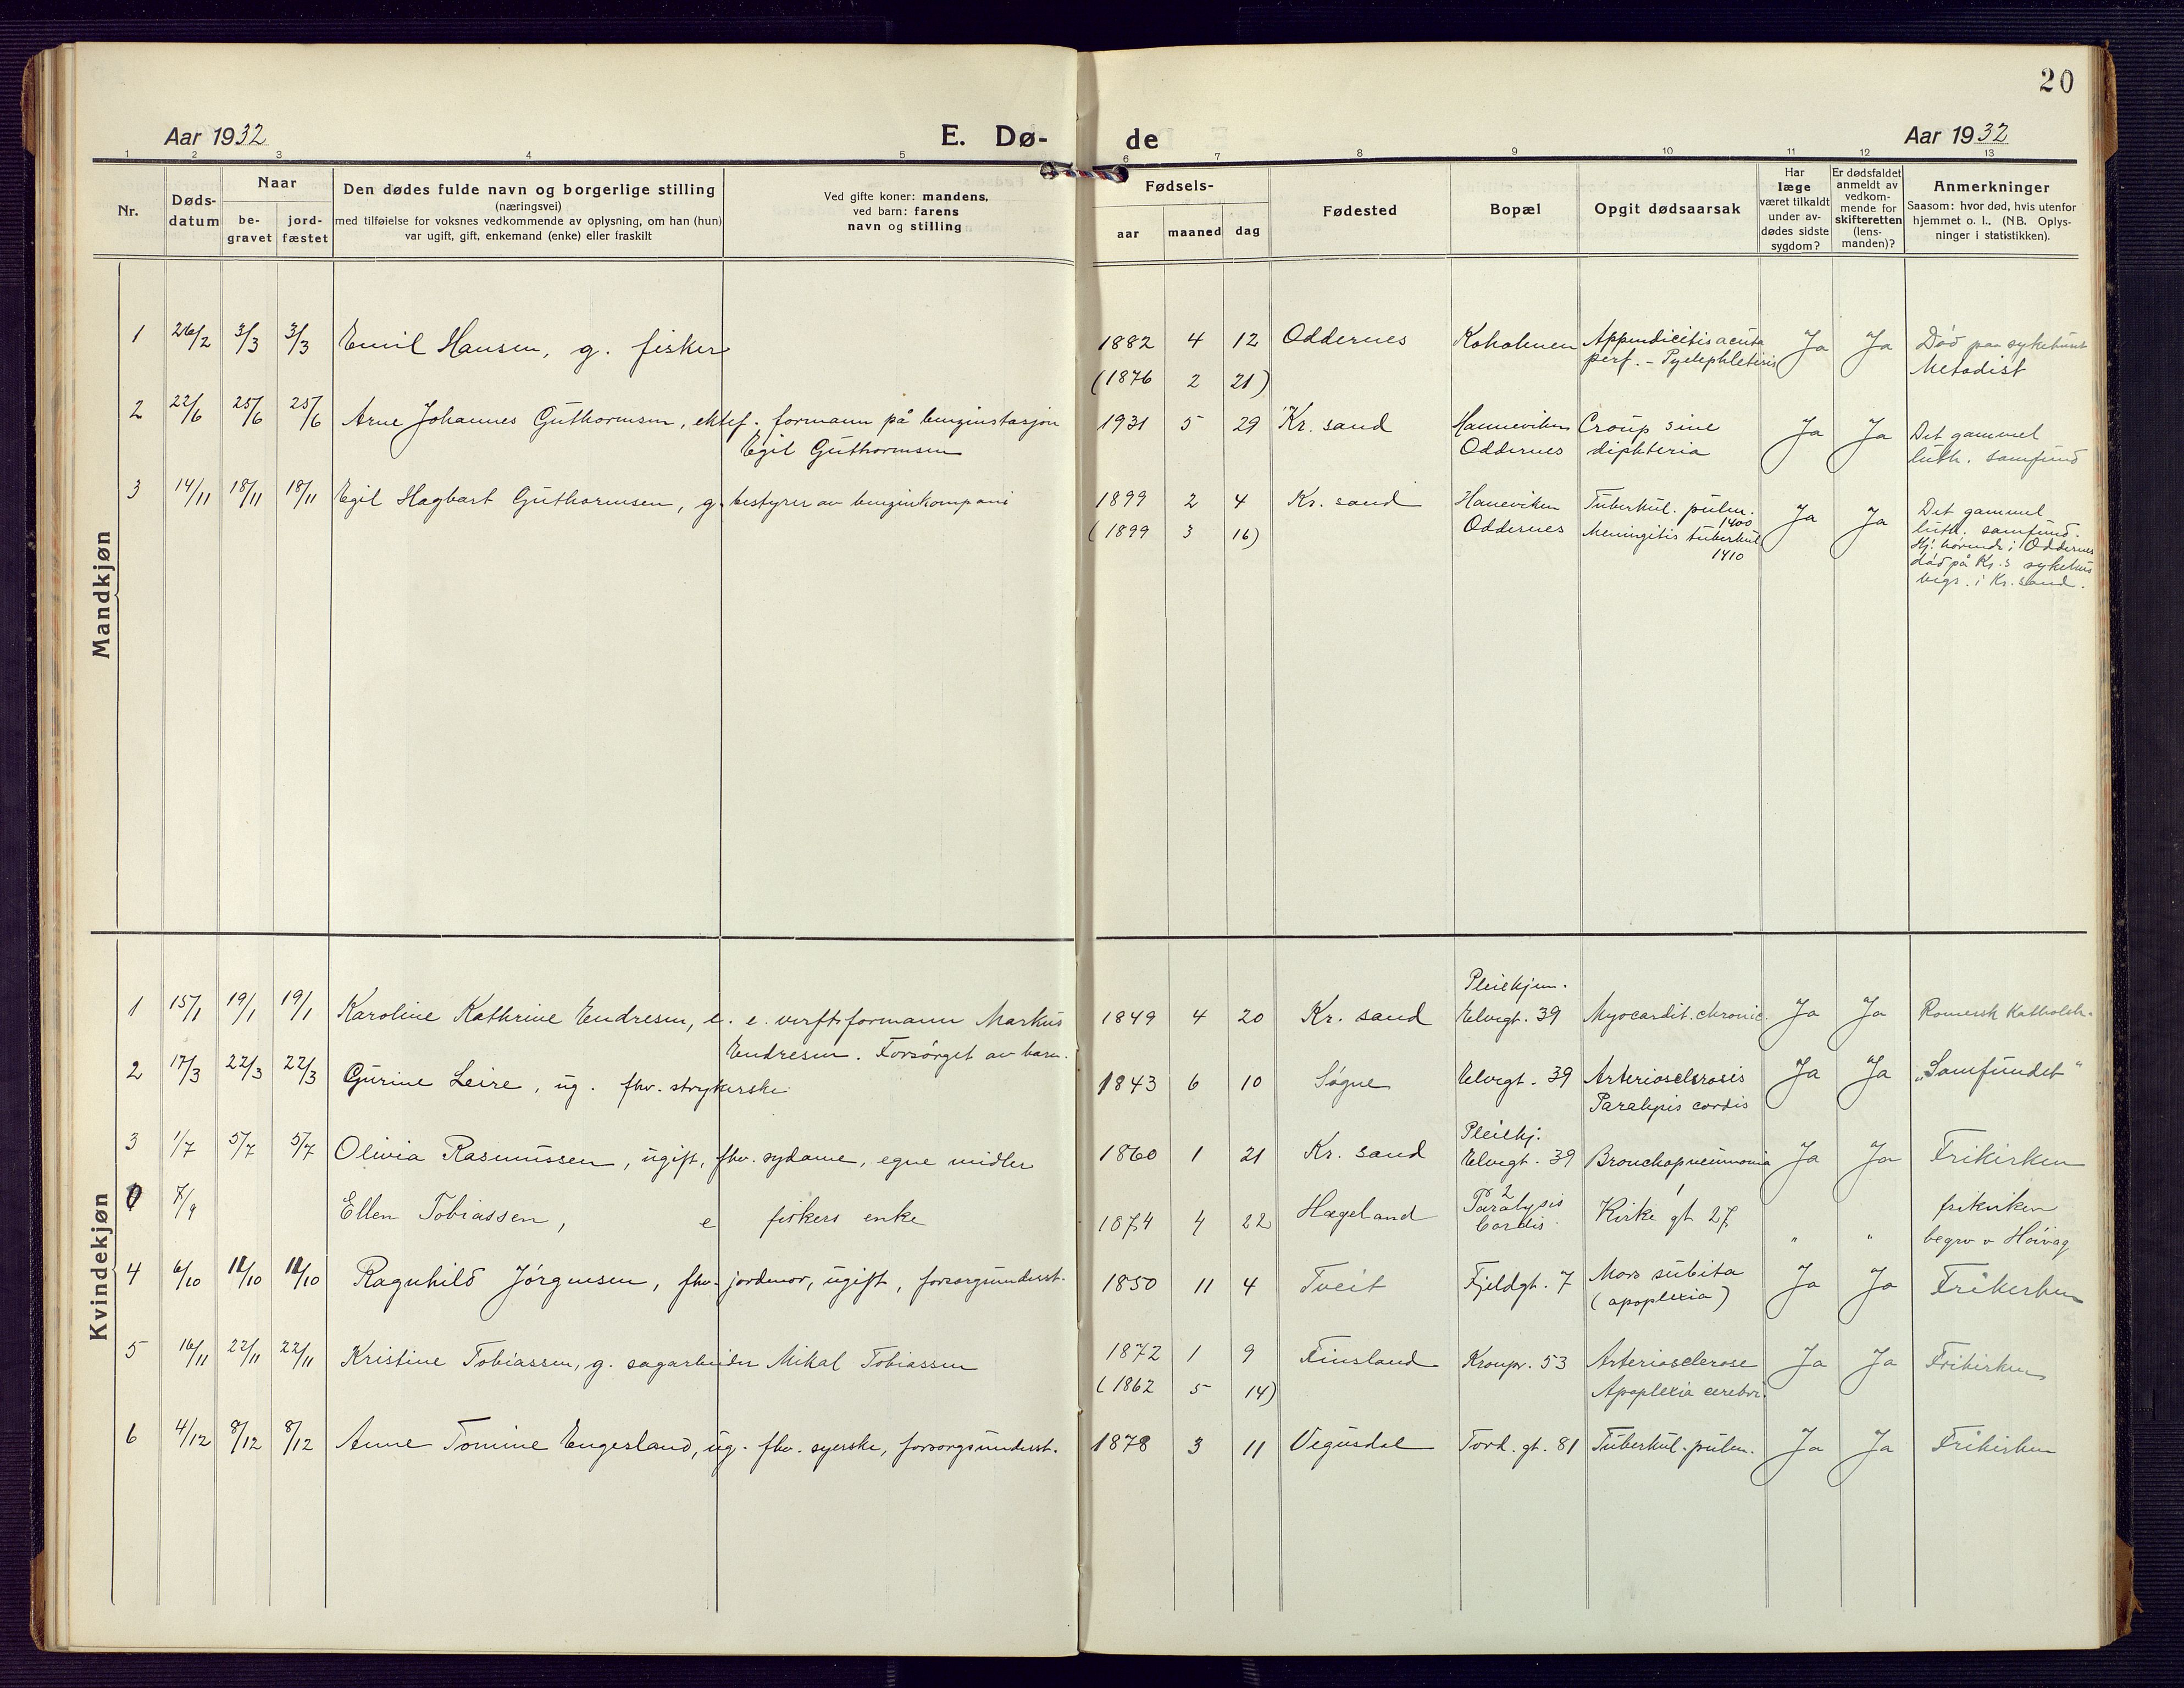 20
Aar 1932
E. Dø-
de
Aar 1932
1 2 3 4 5
6 7 8 9 10 11 12 13
Nr.
Døds-
datum
Naar
be-
gravet
jord-
fæstet
Den dødes fulde navn og borgerlige stilling
(næringsvei)
med tilføielse for voksnes vedkommende av oplysning, om han (hun)
var ugift, gift, enkemand (enke) eller fraskilt
Ved gifte koner: mandens,
ved barn: farens
navn og stilling
Fødsels-
aar
maaned
dag
Fødested
Bopæl
Opgit dødsaarsak
Har
læge
været tilkaldt
under av-
dødes sidste
sygdom?
Er dødsfaldet
anmeldt av
vedkom-
mende for
skifteretten
(lens-
manden)?
Anmerkninger
Saasom: hvor død, hvis utenfor
hjemmet o. l.. (NB. Oplys-
ninger i statistikken).
Mandkjøn
1 26/2 3/3 3/3 Emil Hansen, g. fisker
1882 4 12 Oddernes Kokolmen Appendicitis acuta Ja Ja Død paa sykehuset
(1876 2 21) perf. - Pylephlebitis Metodist
2 22/6 25/6 25/6 Arne Johannes Guthormsen, ektef. formann på bensinstasjon
Egil Guthormsen
1931 5 29 Kr. sand Hanneviken Croup sine Ja Ja Det gammel
Oddernes diphteria luth. samfund
3 14/11 18/11 18/11 Egil Hagbart Guthormsen, g. bestyrer av bensinkompani
1899 2 4 Kr. sand Haneviken Tuberkul. pulm. Ja Ja Det gammel
1400 luth. samfund.
(1899 3 16) Oddernes Meningitis tuberkul. Hj. hørende i Oddernes
1410 død på Kr.s sykehus
begr. i Kr. sand.
Kvindekjøn
1 15/1 19/1 19/1 Karoline Kathrine Endresen, e. e. verftsformann Markus
Endresen. Forsørget av barn.
Pleiehjem.
1849 4 20 Kr. sand Elvegt. 39 Myocardit. chronic. Ja Ja Romersk Katholsk.
2 17/3 22/3 22/3 Gurine Leire, ug. fhv. strykerske
1843 6 10 Søgne Elvegt. 39 Arteriosclerosis Ja Ja "Samfundet"
Paralysis cordis
3 1/7 5/7 5/7 Olivia Rasmussen, ugift, fhv. sydame, egne midler
Pleiehj.
1860 1 21 Kr. sand Elvegt. 39 Bronchopneumonia Ja Ja Frikirken
0 7/9 Ellen Tobiassen, e fiskers enke
2 1
1874 4 22 Hægeland Paralysis Kirke gt 27 " " frikirken
Cordis. begrv v Høivåg
4 6/10 11/10 11/10 Ragnhild Jørgensen, fhv. jordmor, ugift, forsorgsunderst.
1850 11 4 Tveit Fjeldgt. 7 Mors subita Ja Ja Frikirken
(apoplexia)
5 16/11 22/11 22/11 Kristine Tobiassen, g. sagarbeider Mikal Tobiassen
1872 1 9 Finsland Kronpr. 53 Arteriosclerose Ja Ja Frikirken
(1862 5 14) Apoplexia cerebri.
6 4/12 8/12 8/12 Anne Tomine Engesland, ug. fhv. syerske, forsorgsunderst.
1878 3 11 Vegusdal Tord. gt. 81 Tuberkul. pulm. Ja Ja Frikirken